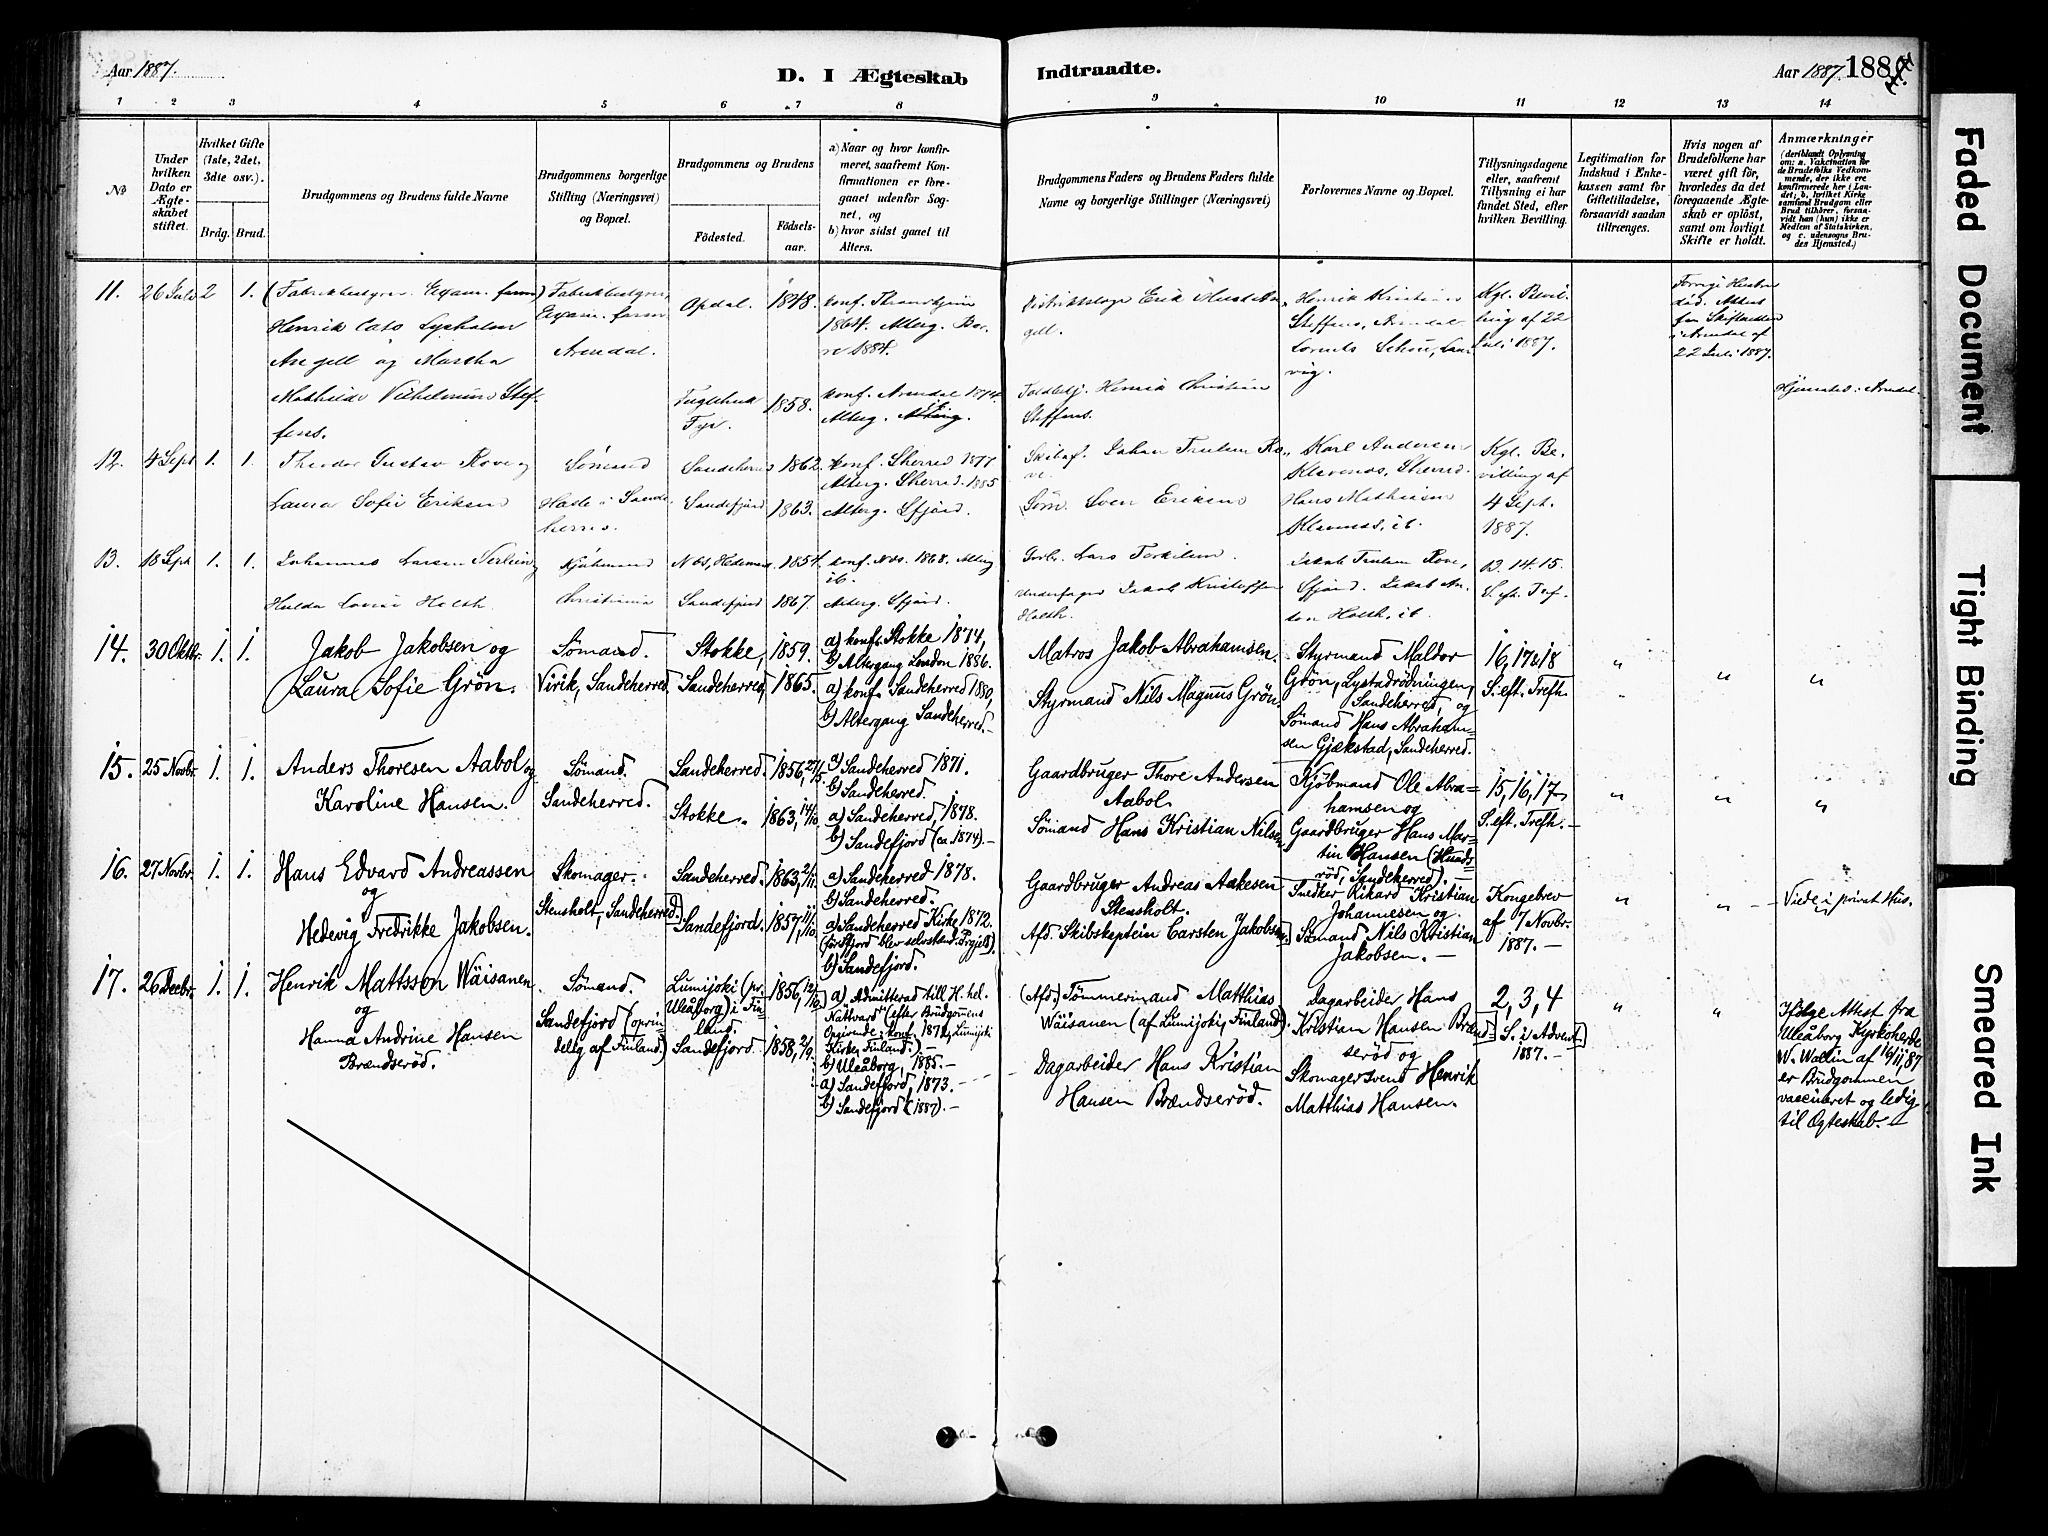 Aar 1887.
D. I Ægteskab
Indtraadte.
Aar 1887.
188
1 2 3 4 5 6 7 8 9 10 11 12 13 14
No
Under hvilken Dato er Ægteskabet stiftet.
Hvilket Gifte (1ste, 2det, 3die osv.).
Brdg. Brud.
Brudgommens og Brudens fulde Navne
Brudgommens borgerlige Stilling (Næringsvei) og Bopæl.
Brudgommens og Brudens
Födested.
Födsels-aar.
a) Naar og hvor konfirmeret, saafremt Konfirmationen er foregaaet udenfor Sognet, og
b) hvor sidst gaaet til Alters.
Brudgommens Faders og Brudens Faders fulde Navne og borgerlige Stillinger (Næringsvei)
Forlovernes Navne og Bopæl.
Tillysningsdagene eller, saafremt Tillysning ei har fundet Sted, efter hvilken Bevilling.
Legitimation for Indskud i Enkekassen samt for Giftetilladelse, forsaavidt saadan tiltrænges.
Hvis nogen af Brudefolkene har været gift för, hvorledes da det foregaaende Ægteskab er oplöst, samt om lovligt Skifte er holdt.
Anmærkninger
(deriblandt Oplysning om: a. Vakcination for de Brudefolks Vedkommende, der ikke ere konfirmerede her i Landet; b. hvilket Kirkesamfund Brudgom eller Brud tilhörer, forsaavidt han (hun) ikke er Medlem af Statskirken, og c. udensogns Brudes Hjemsted.)
11. 26 Juli 2 1.
Henrik Cato Lysholm
Angell og Martha
Mathilde Vilhelmine Stef-
fens.
Arendal.
Opdal. 1848.
konf. Throndhjem
1864. Alterg.
1884.
Fuglehuk
Fyr. 1858.
konf. Arendal 1874.
Alterg.
Distriktslæge Erik
Angell.
Toldbetj. Henrik Christian
Steffens.
Henrik Kristian
Steffens, Arendal
Lorents Schou, Laur-
vig.
Kgl. Bevil-
ling af 22
Juli 1887.
i Arendal af
22 Juli 1887.
Hjemsted: Arendal.
12. 4 Sept 1. 1.
Theodor Gustav Rove og
Laura Sofie Eriksen
Sömand
Hasle i Sande-
herred.
Sandeherred 1862.
Sandefjord 1863.
konf. Sherred 1877
Alterg. Sherred. 1885
Alterg. Sfjord.
Johan Trulsen Ro-
ve.
Söm. Sven Eriksen
Karl Andersen
Klavenes, Sherred.
Hans Mathisen
Klavenes, ib.
Kgl. Be-
villing af
4 Sept.
1887.
13. 18 Sept 1. 1.
Johannes Larsen
Hulda Lovise Holth.
Kjöbmand
Christiania
Nes, Hedemark. 1854.
Sandefjord 1867.
konf. Nes. 1868. Alterg
ib.
Alterg. Sfjord.
Gbr. Lars Torkilsen.
Jakob Kristoffer
Holth.
Jakob Trulsen Rove,
Sfjord. Jakob An-
ton Holth, ib.
13. 14. 15.
S. eft. Tref.
14. 30 Oktbr. 1. 1.
Jakob Jakobsen og
Laura Sofie Grön.
Sömand.
Virik, Sandeherred.
Stokke, 1859.
Sandeherred, 1865.
a) konf. Stokke 1874,
b) Altergang London 1886.
a) konf. Sandeherred 1880,
b) Altergang Sandeherred.
Matros Jakob Abrahamsen.
Styrmand Nils Magnus Grön.
Styrmand Maldor
Grön, Lystadrödningen,
Sandeherred, og
Sömand Hans Abraham-
sen Gjekstad, Sandeherred.
16, 17 & 18
S. eft. Trefh.
15. 25 Novbr. 1. 1.
Anders Thoresen Aabol og
Karoline Hansen.
Sömand.
Sandeherred.
Sandeherred. 1856, 27/5.
Stokke. 1863, 14/10.
a) Sandeherred 1871.
b) Sandeherred.
a) Sandeherred, 1878.
b) Sandefjord (ca 1874).
Gaardbruger Thore Andersen
Aabol.
Sömand Hans Kristian Nilsen.
Kjöbmand Ole Abra-
hamsen og
Gaardbruger Hans Mar-
tin Hansen (Hunds-
röd, Sandeherred).
15, 16, 17
S. eft. Trefh.
16. 27 Novbr. 1. 1.
Hans Edvard Andreassen
og
Hedevig Fredrikke Jakobsen.
Skomager.
Stensholt, Sandeherred.
Sandeherred. 1863, 2/11.
Sandefjord. 1857, 11/10.
a) Sandeherred 1878.
b) Sandeherred.
a) Sandeherred Kirke, 1872.
(för Sfjord blev selvstænd. Prgjeld).
b) Sandefjord.
Gaardbruger Andreas Aakesen
Stensholt.
Afd. Skibskaptein Carsten Jakobsen.
Snedker Rikard Kristian
Johannesen og
Sömand Nils Kristian
Jakobsen.
Kongebrev
af 7 Novbr.
1887.
Viede i privat Hus.
17. 26 Decbr. 1. 1.
Henrik Mattsson Wäisanen
og
Hanna Andrine Hansen
Brændseröd.
Sömand.
Sandefjord (oprin-
delig af Finland.)
Lumijoki (pr.
Uleåborg) i Fin-
land.
1856, 12/12.
Sandefjord 1858, 2/9.
a) "Admitterad till H. hel.
Nattvard" (efter Brudgommens
Opgivende: konf. 1872, Lumijoki
Kirke, Finland.)
b) Uleåborg, 1885.
a) Sandefjord, 1873.
b) Sandefjord (1887).
(Afd.) Tömmermand Matthias
Wäisanen (af Lumijoki, Finland).
Dagarbeider Hans Kristian
Hansen Brændseröd.
Dagarbeider Hans
Kristian Hansen Brænd-
seröd og
Skomagersvend Henrik
Matthias Hansen.
2, 3, 4
S. i Advent
1887.
Ifölge Attest fra
Uleåborg Kyrkoherde
W. Wallin af 16/11, 87
er Brudgommen
vaccineret og ledig
til Ægteskab.
Faded Document
Tight Binding
Smeared Ink